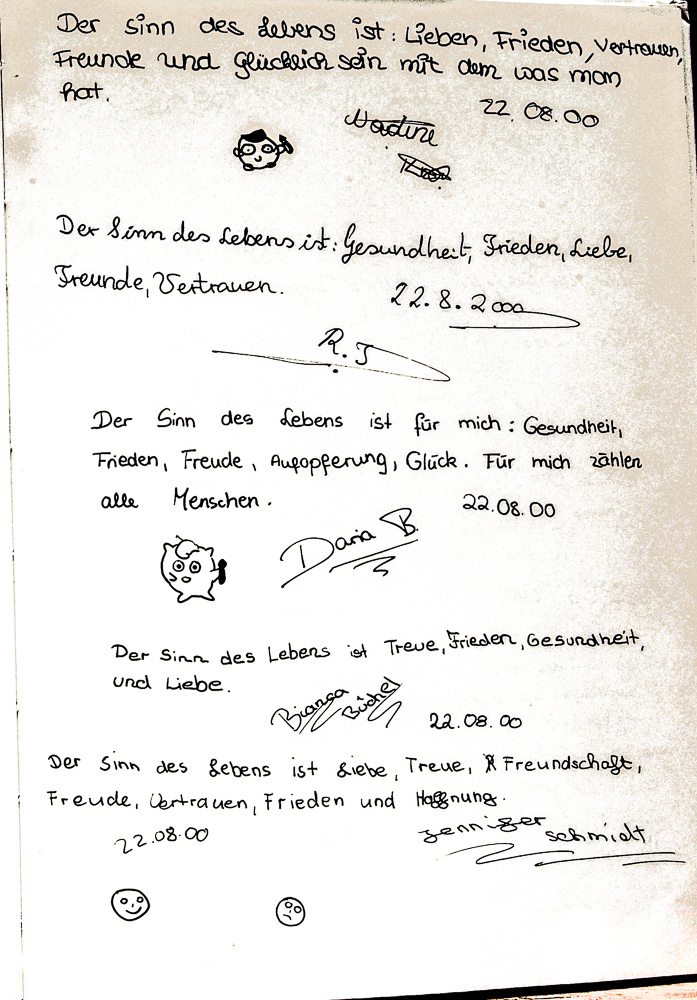 Der Sinn des Lebens ist: Lieben, Frieden, Vertrauen,
Freunde und Glücklich sein mit dem was man
hat.
22.08.00
Nadine
Der Sinn des Lebens ist: Gesundheit, Frieden, Liebe,
Freunde, Vertrauen.
22.8.2000
R.J
Der Sinn des Lebens ist für mich: Gesundheit,
Frieden, Freude, Aufopferung, Glück. Für mich zählen
alle Menschen.
22.08.00
Daria B.
Der Sinn des Lebens ist Treue, Frieden, Gesundheit,
und Liebe.
Bianca Büchel
22.08.00
Der Sinn des Lebens ist Liebe, Treue, Freundschaft,
Freude, Vertrauen, Frieden und Hoffnung.
22.08.00
Jennifer Schmidt